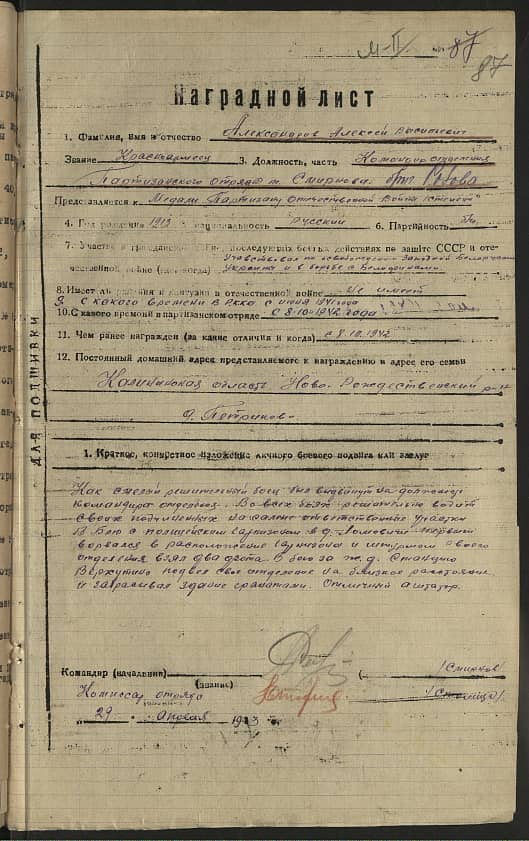 М-II 87
87
Наградной лист
1. Фамилия, имя и отчество Александров Алексей Васильевич
Звание Красноармеец 3. Должность, часть Командир отделения
Партизанского отряда т. Смирнова
Представляется к Медали Партизану Отечественной Войны I степени
4. Год рождения 1913 национальность Русский 6. Партийность
7. Участие в гражданской войне, последующих боевых действиях по защите СССР и отечественной войне (где, когда)
Участвовал по освобождению Западной Белоруссии
Украины и в борьбе с Белофинами
8. Имеет ли ранения и контузии в отечественной войне Не имеет
9. С какого времени в РККА с июня 1941 года
10. С какого времени в партизанском отряде с 8-10-1942 года
11. Чем ранее награжден (за какие отличия и когда) с 8.10.1942
12. Постоянный домашний адрес представляемого к награждению и адрес его семьи
Калининская область Ново-Рождественский р-н
д. Петриков
ДЛЯ ПОДШИВКИ
1. Краткое, конкретное изложение личного боевого подвига или заслуг
Как смелый решительный боец был выдвинут на должность
командира отделения. Во всех боях решительно водит
своих подчиненных на самые ответственные участки
В бою с полицейским гарнизоном в д.
ворвался в расположение гарнизона и штурмом своего
отделения взял два дзота. В бою за ж.д. станцию
Верхутино подвел свое отделение на близкое расстояние
и забрасывал здание гранатами. Отличный агитатор.
Командир (начальник) (Смирнов)
(звание)
Комиссар отряда
29 апреля 1943 года